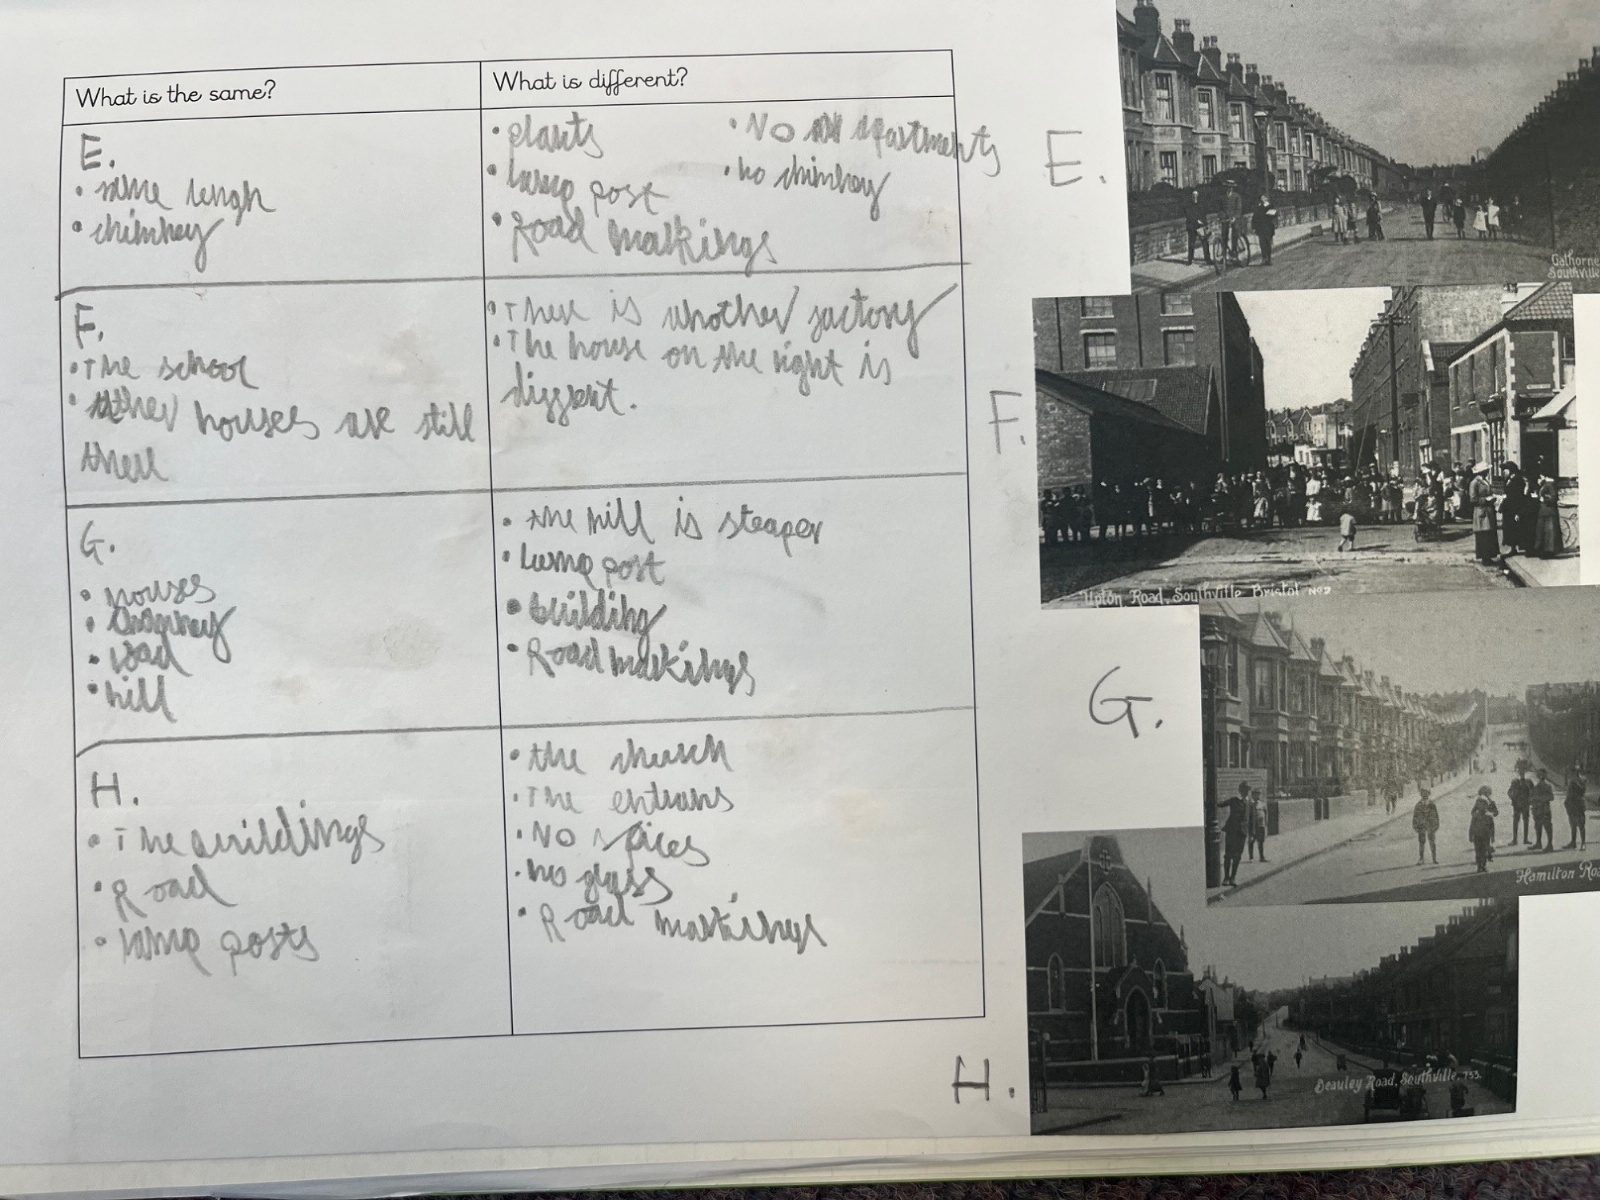 What is the same?
What is different?
E.
• same lengh
• chimney
• plants
• lamp post
• Road markings
• No apartments
• no chimney
F.
• The school
• other houses are still
there
• There is another factory
• The house on the right is
diffent.
G.
• houses
• chimney
• road
• hill
• the hill is steaper
• Lamp post
• building
• Road markings
H.
• The buildings
• Road
• lamp posts
• the church
• The entrans
• No spices
• no glass
• Road markings
E.
Gathorne
Southville
F.
Upton Road, Southville Bristol No2
G.
Hamilton Roa
H.
Beauley Road, Southville. 753.